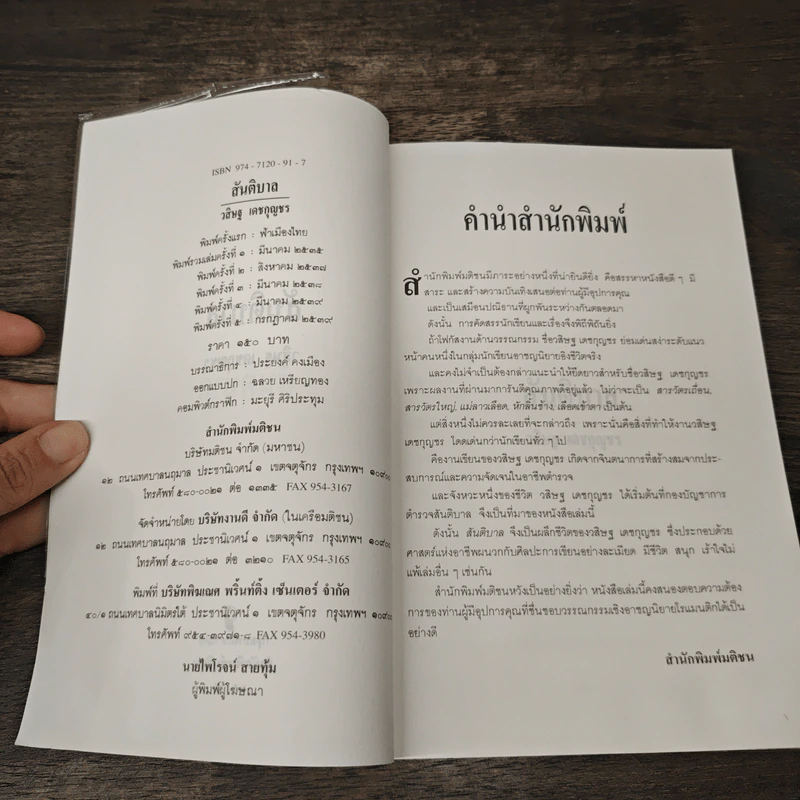 ISBN 974 - 7120 - 91 - 7
สันติบาล
วสิษฐ เดชกุญชร
พิมพ์ครั้งแรก : ฟ้าเมืองไทย
พิมพ์รวมเล่มครั้งที่ ๑ : มีนาคม ๒๕๓๕
พิมพ์ครั้งที่ ๒ : สิงหาคม ๒๕๓๗
พิมพ์ครั้งที่ ๓ : มีนาคม ๒๕๓๘
พิมพ์ครั้งที่ ๔ : มีนาคม ๒๕๓๙
พิมพ์ครั้งที่ ๕ : กรกฎาคม ๒๕๓๙
ราคา ๑๕๐ บาท
บรรณาธิการ : ประยงค์ คงเมือง
ออกแบบปก : ฉลวย เหรียญทอง
คอมพิวต์กราฟิก : มะยุรี ศิริประทุม
สำนักพิมพ์มติชน
บริษัทมติชน จำกัด (มหาชน)
๑๒ ถนนเทศบาลนฤมาล ประชานิเวศน์ ๑ เขตจตุจักร กรุงเทพฯ ๑๐๙๐๐
โทรศัพท์ ๕๘๐-๐๐๒๑ ต่อ ๑๓๓๕ FAX 954-3167
จัดจำหน่ายโดย บริษัทงานดี จำกัด (ในเครือมติชน)
๑๒ ถนนเทศบาลนฤมาล ประชานิเวศน์ ๑ เขตจตุจักร กรุงเทพฯ ๑๐๙๐๐
โทรศัพท์ ๕๘๐-๐๐๒๑ ต่อ ๓๒๑๐ FAX 954-3165
พิมพ์ที่ บริษัทพิฆเณศ พริ้นท์ติ้ง เซ็นเตอร์ จำกัด
๔๐/๑ ถนนเทศบาลนิมิตรใต้ ประชานิเวศน์ ๑ เขตจตุจักร กรุงเทพฯ ๑๐๙๐๐
โทรศัพท์ ๙๕๔-๓๙๘๑-๘ FAX 954-3980
นายไพโรจน์ สายทุ้ม
ผู้พิมพ์ผู้โฆษณา
คำนำสำนักพิมพ์
สำนักพิมพ์มติชนมีภาระอย่างหนึ่งที่น่ายินดียิ่ง คือสรรหาหนังสือดี ๆ มี
สาระ และสร้างความบันเทิงเสนอต่อท่านผู้มีอุปการคุณ
และเป็นเสมือนปณิธานที่ผูกพันระหว่างกันตลอดมา
ดังนั้น การคัดสรรนักเขียนและเรื่องจึงพิถีพิถันยิ่ง
ถ้าไฟกัสงานด้านวรรณกรรม ชื่อวสิษฐ เดชกุญชร ย่อมเด่นสง่าระดับแนว
หน้าคนหนึ่งในกลุ่มนักเขียนอาชญนิยายอิงชีวิตจริง
และคงไม่จำเป็นต้องกล่าวแนะนำให้ยืดยาวสำหรับชื่อวสิษฐ เดชกุญชร
เพราะผลงานที่ผ่านมาการันตีคุณภาพดีอยู่แล้ว ไม่ว่าจะเป็น สารวัตรเถื่อน,
สารวัตรใหญ่, แม่ลาวเลือด, หักลิ้นช้าง, เลือดเข้าตา เป็นต้น
แต่สิ่งหนึ่งไม่ควรละเลยที่จะกล่าวถึง เพราะนั่นคือสิ่งที่ทำให้งานวสิษฐ
เดชกุญชร โดดเด่นกว่านักเขียนทั่ว ๆ ไป
คืองานเขียนของวสิษฐ เดชกุญชร เกิดจากจินตนาการที่สร้างสมจากประ-
สบการณ์และความจัดเจนในอาชีพตำรวจ
และจังหวะหนึ่งของชีวิต วสิษฐ เดชกุญชร ได้เริ่มต้นที่กองบัญชาการ
ตำรวจสันติบาล จึงเป็นที่มาของหนังสือเล่มนี้
ดังนั้น สันติบาล จึงเป็นผลึกชีวิตของวสิษฐ เดชกุญชร ซึ่งประกอบด้วย
ศาสตร์แห่งอาชีพผนวกกับศิลปะการเขียนอย่างละเมียด มีชีวิต สนุก เร้าใจไม่
แพ้เล่มอื่น ๆ เช่นกัน
สำนักพิมพ์มติชนหวังเป็นอย่างยิ่งว่า หนังสือเล่มนี้คงสนองตอบความต้อง
การของท่านผู้มีอุปการคุณที่ชื่นชอบวรรณกรรมเชิงอาชญนิยายโรแมนติกได้เป็น
อย่างดี
สำนักพิมพ์มติชน